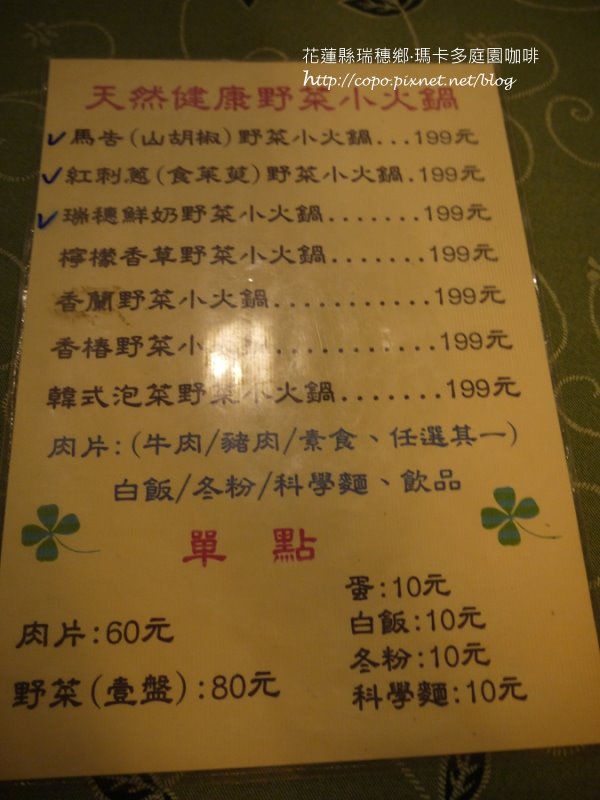 花蓮縣瑞穗鄉·瑪卡多庭園咖啡
http://copo.pixnet.net/blog
天然健康野菜小火鍋
馬告(山胡椒)野菜小火鍋...199元
紅刺蔥(食茱萸)野菜小火鍋.199元
瑞穗鮮奶野菜小火鍋.......199元
檸檬香草野菜小火鍋.......199元
香蘭野菜小火鍋............199元
香椿野菜小火鍋............199元
韓式泡菜野菜小火鍋.......199元
肉片:(牛肉/豬肉/素食、任選其一)
白飯/冬粉/科學麵、飲品
單點
蛋:10元
肉片:60元
白飯:10元
冬粉:10元
野菜(壹盤):80元
科學麵:10元